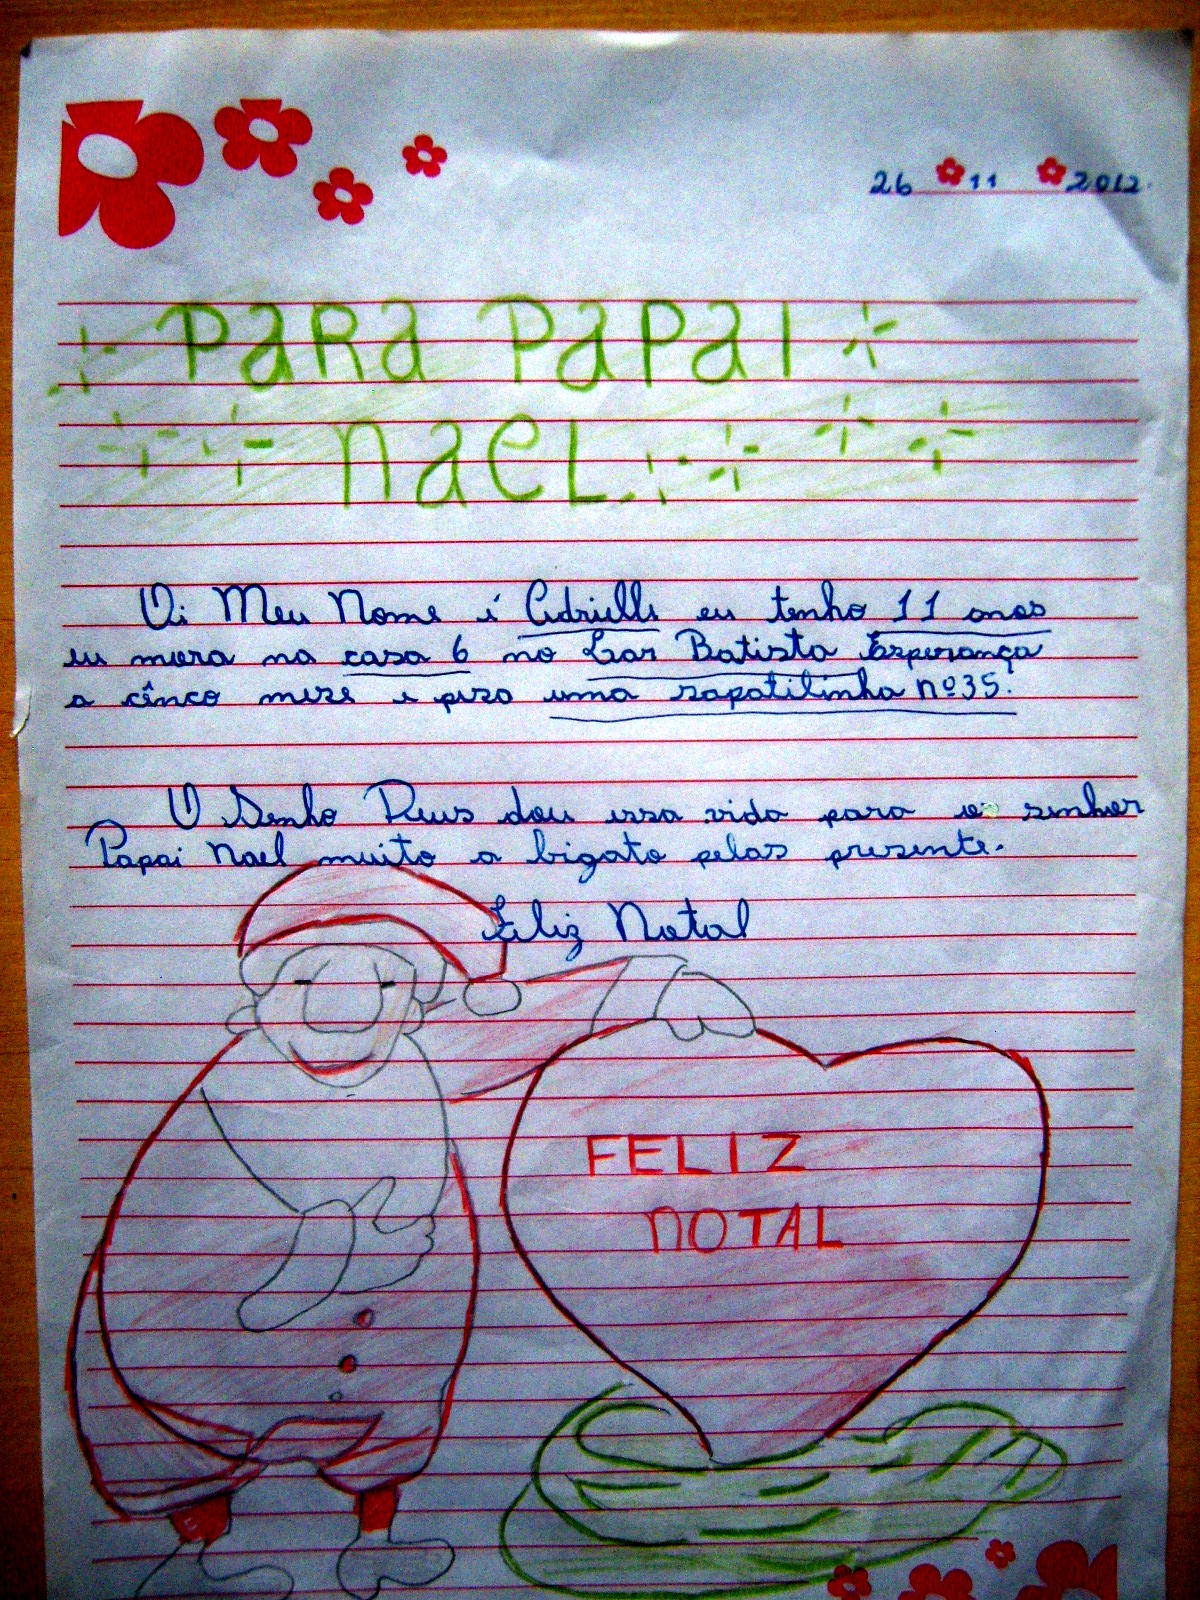 26 11 2012
PARA PAPAI
NAEL
Oi Meu Nome é Adrielli eu tenho 11 anos
eu mora na casa 6 no Lar Batista Esperança
a cînco mese e peso uma sapatilinha nº 35.
O Senho Deus dou essa vida para o senhor
Papai Nael muito a bigato pelas presente.
Feliz Natal
FELIZ
NOTAL